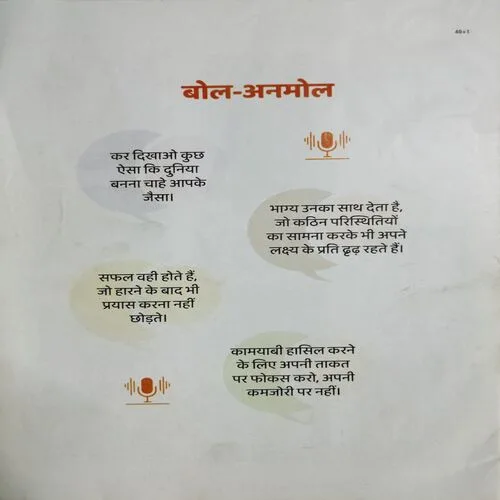 40+1
बोल-अनमोल
कर दिखाओ कुछ
ऐसा कि दुनिया
बनना चाहे आपके
जैसा।
भाग्य उनका साथ देता है,
जो कठिन परिस्थितियों
का सामना करके भी अपने
लक्ष्य के प्रति दृढ़ रहते हैं।
सफल वही होते हैं,
जो हारने के बाद भी
प्रयास करना नहीं
छोड़ते।
कामयाबी हासिल करने
के लिए अपनी ताकत
पर फोकस करो, अपनी
कमजोरी पर नहीं।